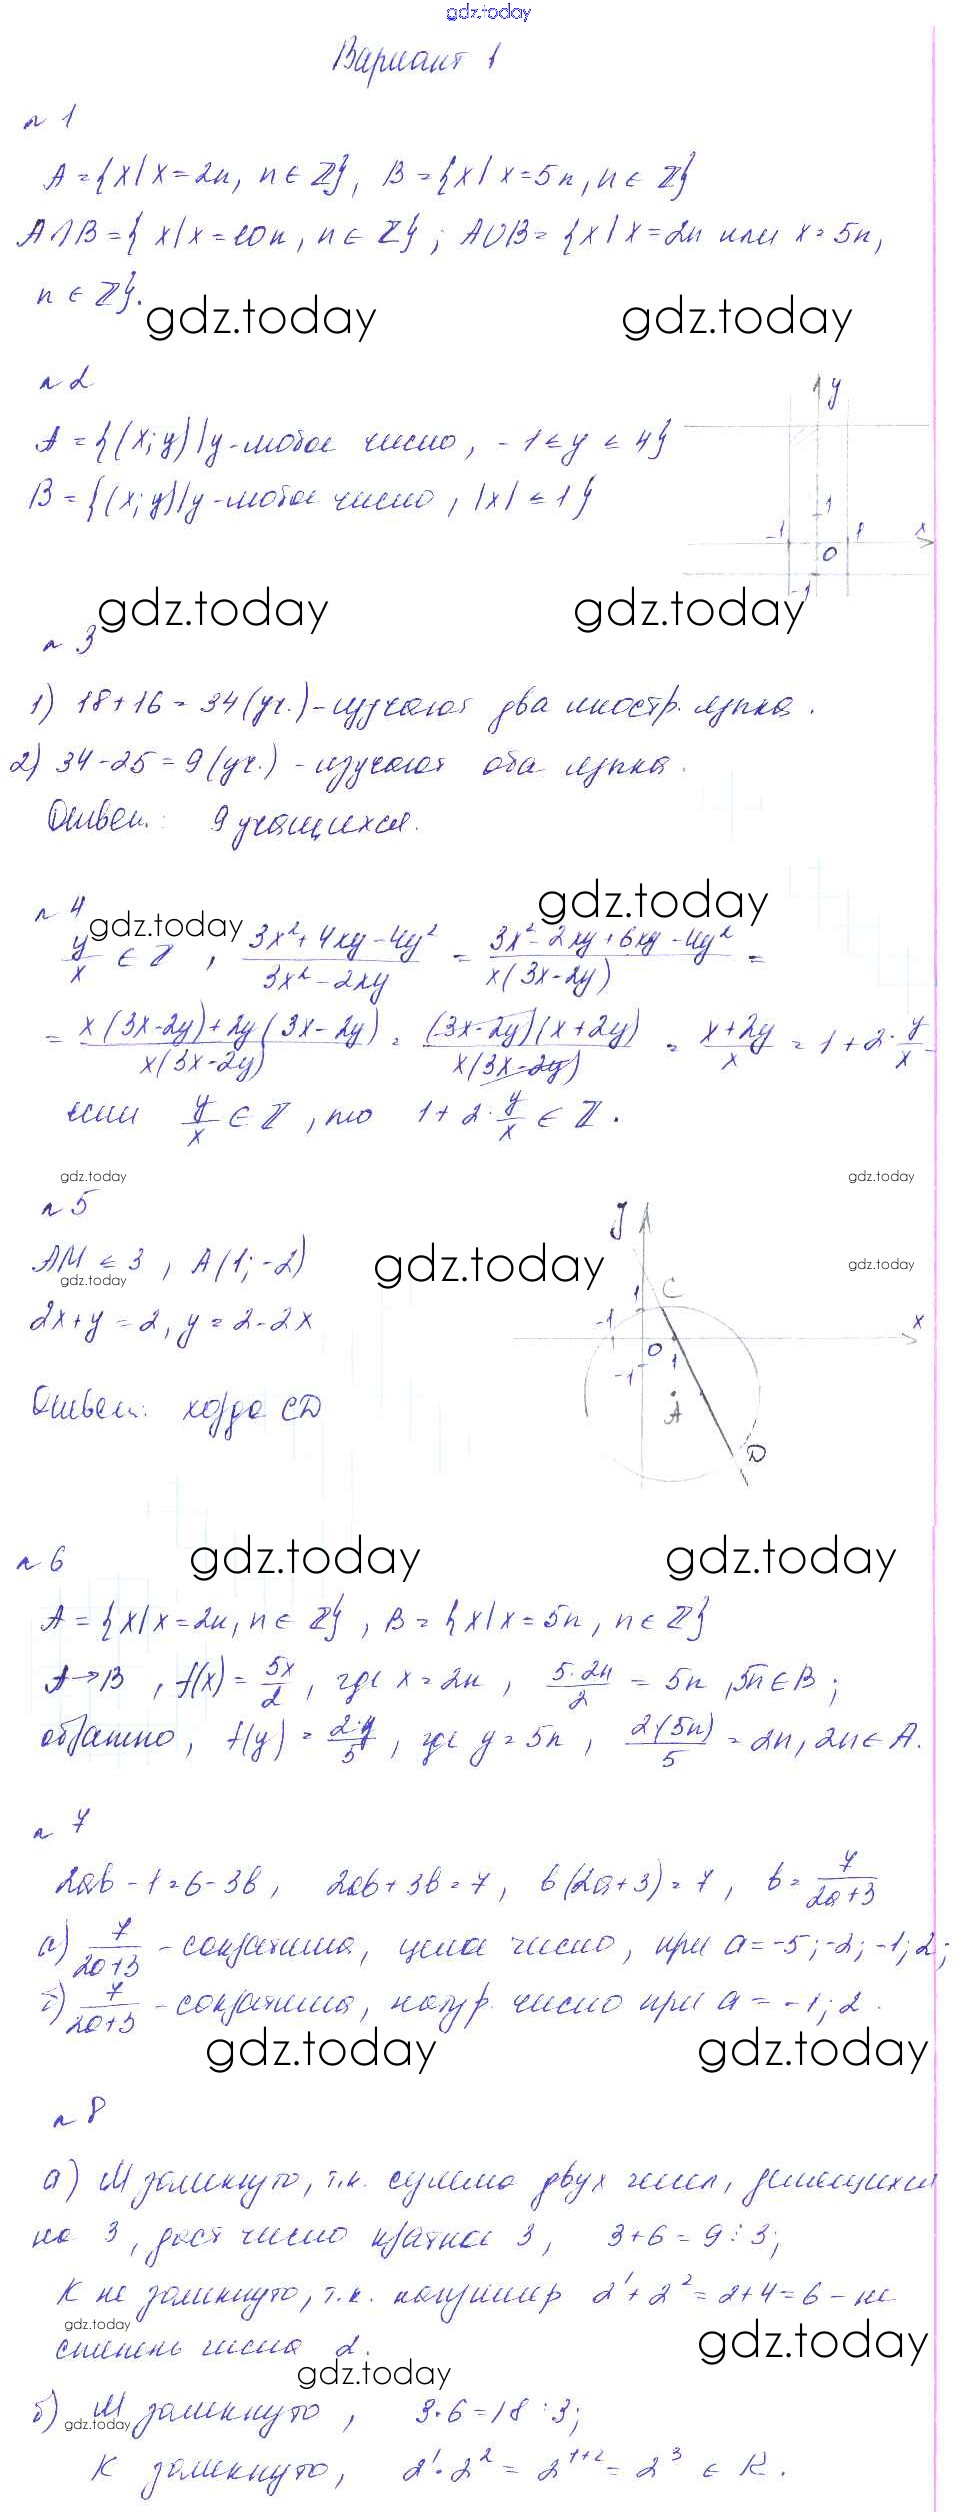 gdz.today
Вариант 1
n 1
A = {x | x = 2n, n ∈ Z}, B = {x | x = 5n, n ∈ Z}
A ∩ B = {x | x = 10n, n ∈ Z}; A ∪ B = {x | x = 2n или x = 5n,
n ∈ Z}.
gdz.today gdz.today
n 2
y
A = {(x; y) | y - любое число, -1 ≤ y ≤ 4}
B = {(x; y) | y - любое число, |x| ≤ 1}
1
-1 0 1 x
-1
gdz.today gdz.today
n 3
1) 18 + 16 = 34 (уч.) - изучают два иностр. языка.
2) 34 - 25 = 9 (уч.) - изучают оба языка.
Ответ: 9 учащихся.
gdz.today
n 4
gdz.today
y/x ∈ Z, (3x² + 4xy - 4y²)/(3x² - 2xy) = (3x² - 2xy + 6xy - 4y²)/(x(3x - 2y)) =
= (x(3x - 2y) + 2y(3x - 2y))/(x(3x - 2y)) = ((3x - 2y)(x + 2y))/(x(3x - 2y)) = (x + 2y)/x = 1 + 2·y/x -
если y/x ∈ Z, то 1 + 2·y/x ∈ Z.
gdz.today gdz.today
n 5
y
AM ≤ 3, A(1; -2)
gdz.today gdz.today gdz.today
2x + y = 2, y = 2 - 2x
C
1
-1 0 1 x
-1
A
D
Ответ: хорда CD
gdz.today gdz.today
n 6
A = {x | x = 2n, n ∈ Z}, B = {x | x = 5n, n ∈ Z}
A → B, f(x) = 5x/2, где x = 2n, 5·2n/2 = 5n, 5n ∈ B;
обратно, f(y) = 2·y/5, где y = 5n, 2·(5n)/5 = 2n, 2n ∈ A.
n 7
2ab - 1 = 6 - 3b, 2ab + 3b = 7, b(2a + 3) = 7, b = 7/(2a + 3)
а) 7/(2a + 3) - сократима, целое число, при a = -5; -2; -1; 2;
б) 7/(2a + 3) - сократима, натур. число при a = -1; 2.
gdz.today gdz.today
n 8
а) M замкнуто, т.к. сумма двух чисел, делящихся
на 3, даст число кратное 3, 3 + 6 = 9 ⋮ 3;
K не замкнуто, т.к. например 2¹ + 2² = 2 + 4 = 6 - не
gdz.today gdz.today
степень числа 2.
gdz.today
б) M замкнуто, 3·6 = 18 ⋮ 3;
gdz.today
K замкнуто, 2¹·2² = 2¹⁺² = 2³ ∈ K.